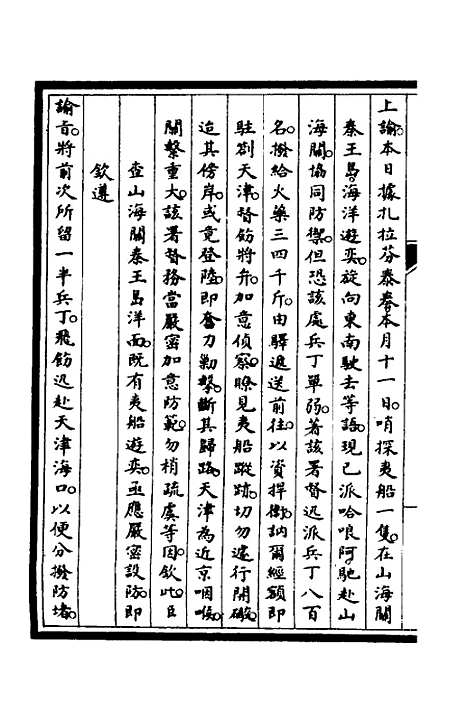 上諭。本日據扎拉芬泰奏。本月十一日。哨探夷船一隻。在山海關
秦王島。海洋遊奕。旋向東南駛去等語。現已派哈哴阿馳赴山
海關。協同防禦。但恐該處兵丁單弱。著該署督迅派兵丁八百
名。撥給火藥三四千斤。由驛遞送前往。以資捍衛。訥爾經額即
駐劄天津。督飭將弁。加意偵察。瞭見夷船蹤跡。切勿遽行開礮。
迨其傍岸。或竟登陸。即奮力勦擊。斷其歸路。天津為近京咽喉。
關繫重大。該署督務當嚴密加意防範。勿稍疏虞等因。欽此。臣
查山海關秦王島洋面。既有夷船遊奕。亟應嚴密設防。即
欽遵
諭旨。將前次所留一半兵丁。飛飭迅赴天津海口。以便分撥防堵。